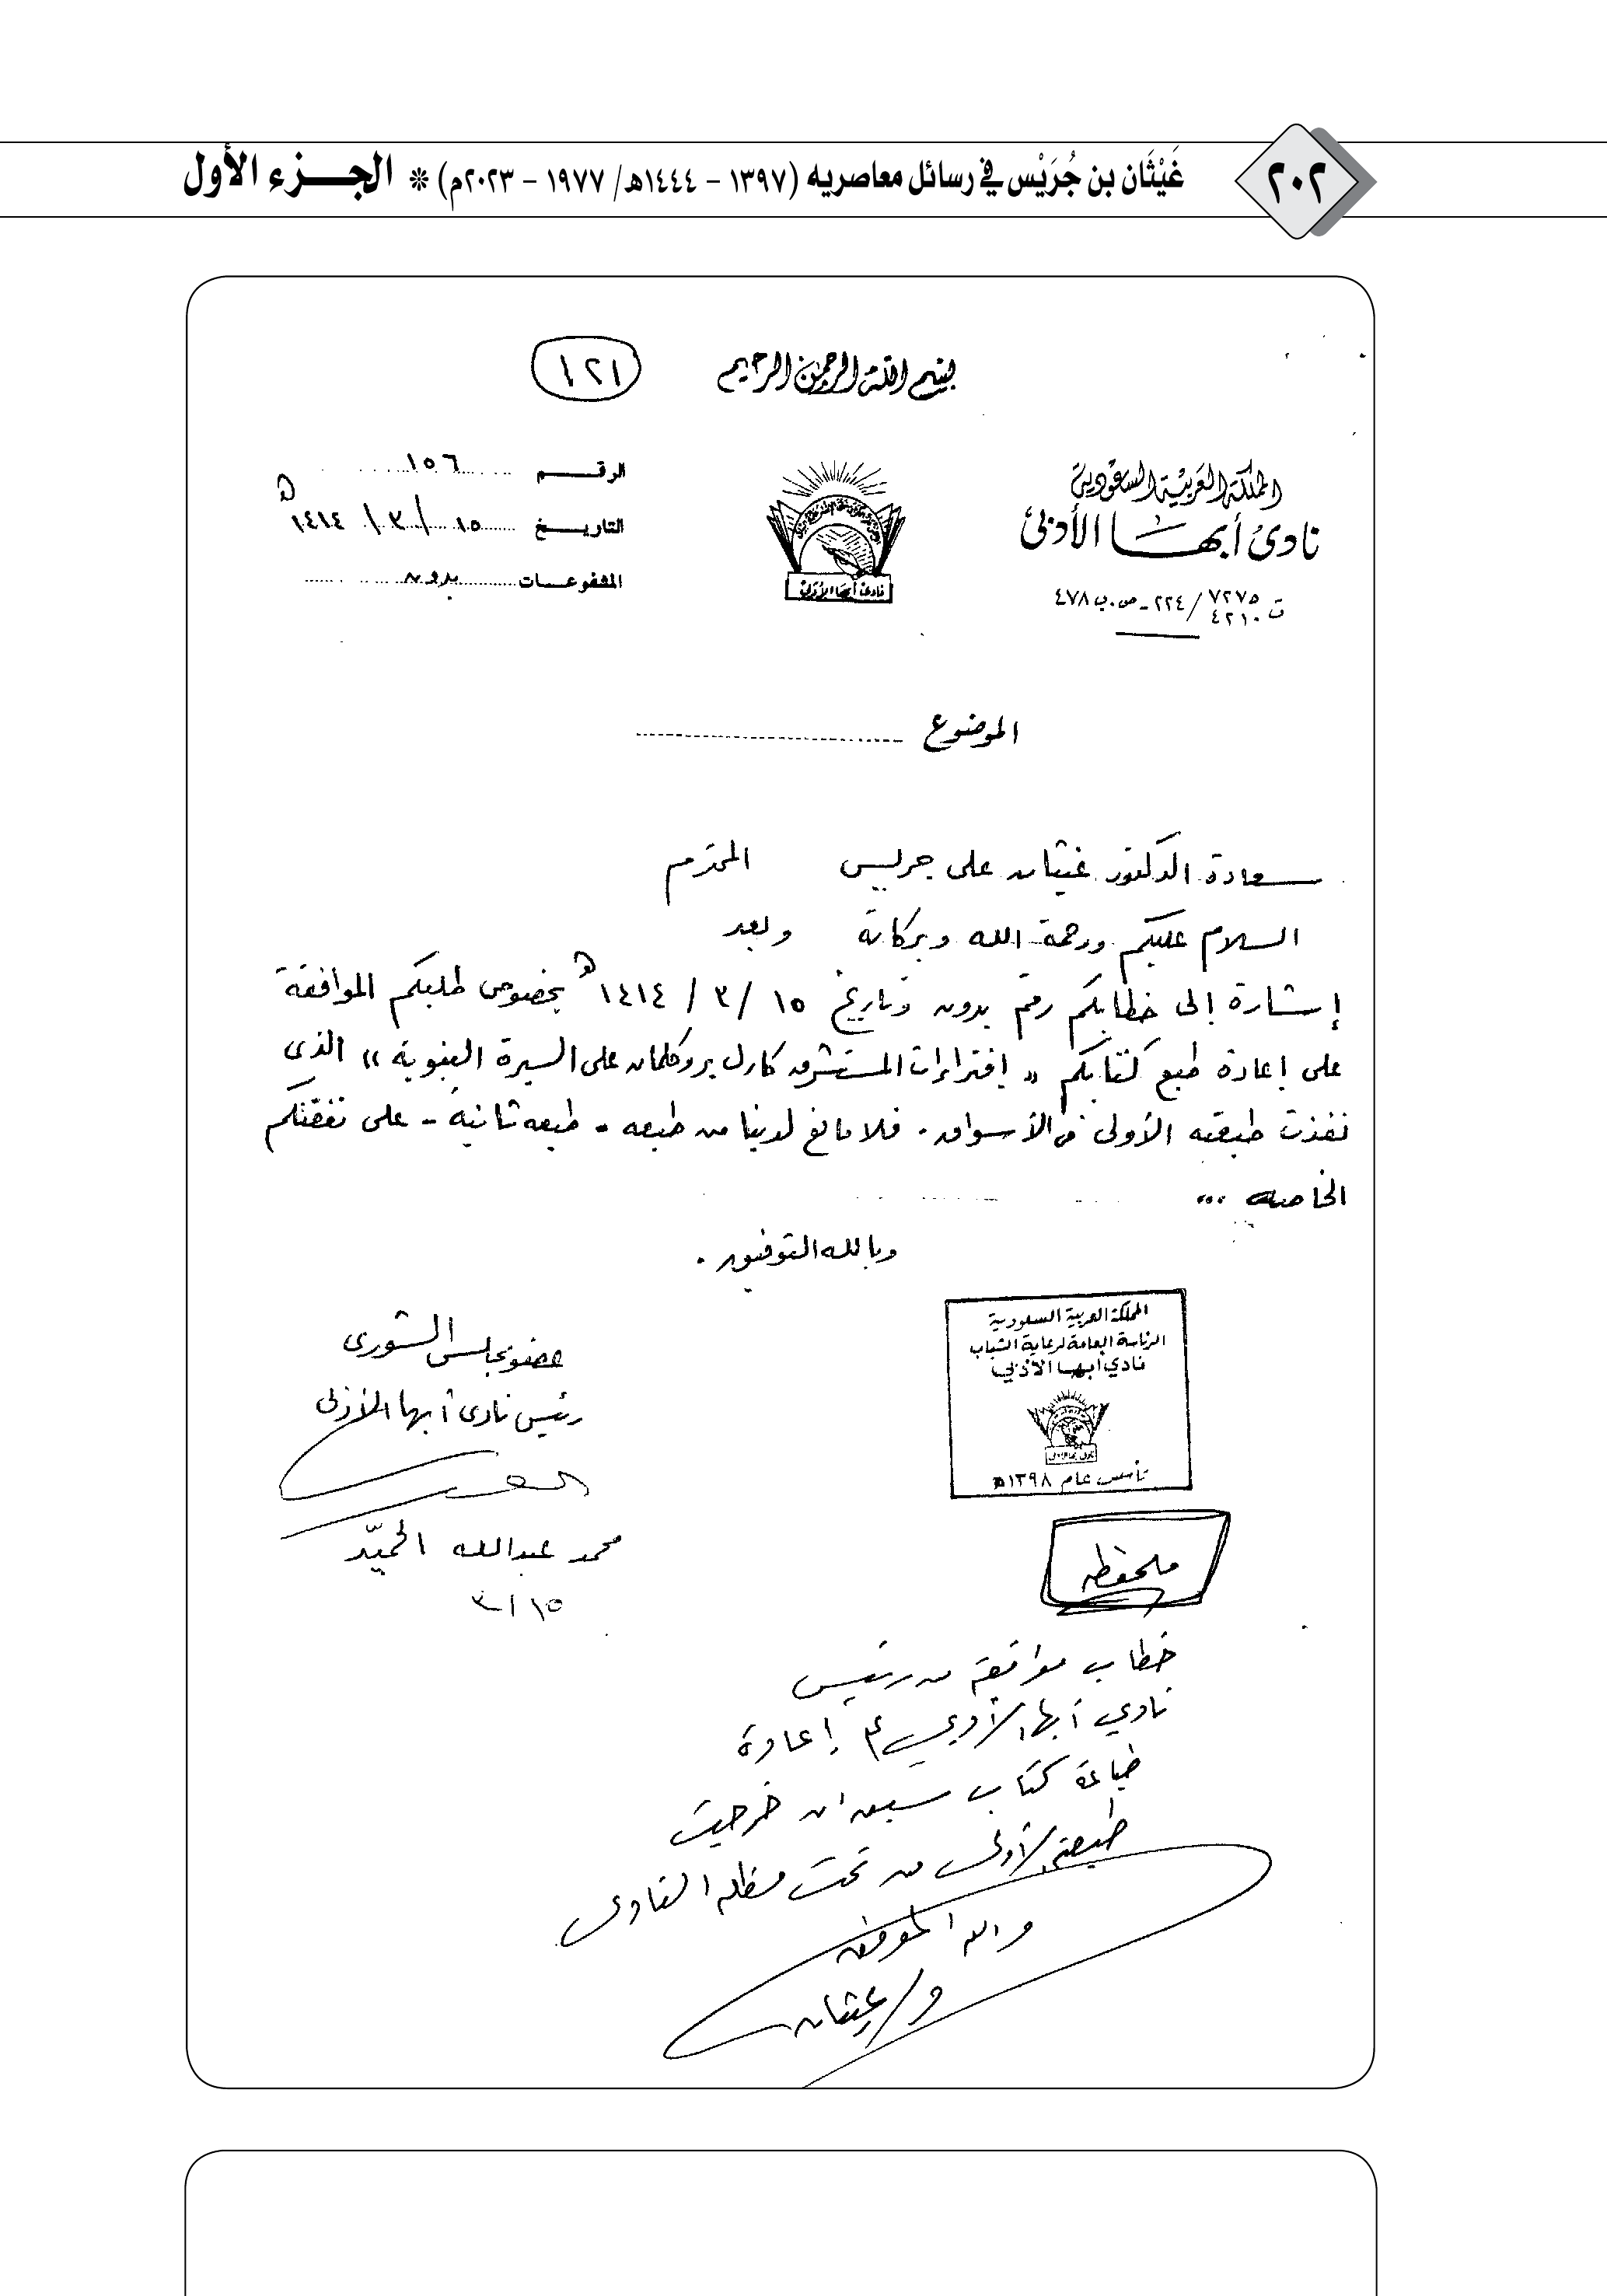 ٢٠٢
غَيْثَان بن جُرَيْس في رسائل معاصريه (١٣٩٧ - ١٤٤٤هـ/ ١٩٧٧ - ٢٠٢٣م) * الجزء الأول
١٢١
بسم الله الرحمن الرحيم
المملكة العربية السعودية
نادي أبها الأدبي
ت ٧٢٧٥ / ٤٢١٠ / ٢٢٤ - ص.ب ٤٧٨
نادي أبها الأدبي
الرقم ١٥٦
التاريخ ١٥ / ٣ / ١٤١٤هـ
المشفوعات بدون
الموضوع
سعادة الدكتور غيثان علي جريس المحترم
السلام عليكم ورحمة الله وبركاته وبعد
إشارة إلى خطابكم رقم بدون وتاريخ ١٥ / ٣ / ١٤١٤هـ بخصوص طلبكم الموافقة
على إعادة طبع كتابكم « إفتراءات المستشرق كارل بروكلمان على السيرة النبوية » الذي
نفذت طبعته الأولى من الأسواق . فلا مانع لدينا من طبعه - طبعه ثانية - على نفقتكم
الخاصه ...
وبالله التوفيق .
المملكة العربية السعودية
الرئاسة العامة لرعاية الشباب
نادي أبها الأدبي
تأسس عام ١٣٩٨هـ
عضو مجلس الشورى
رئيس نادي أبها الأدبي
محمد عبدالله الحميّد
١٥ / ٣
ملحوظه
خطاب موافقة من رئيس
نادي أبها الأدبي على إعادة
طباعة كتاب سبق أن خرجت
طبعته الأولى من تحت مظلة النادي
والله الموفق
د/ غيثان